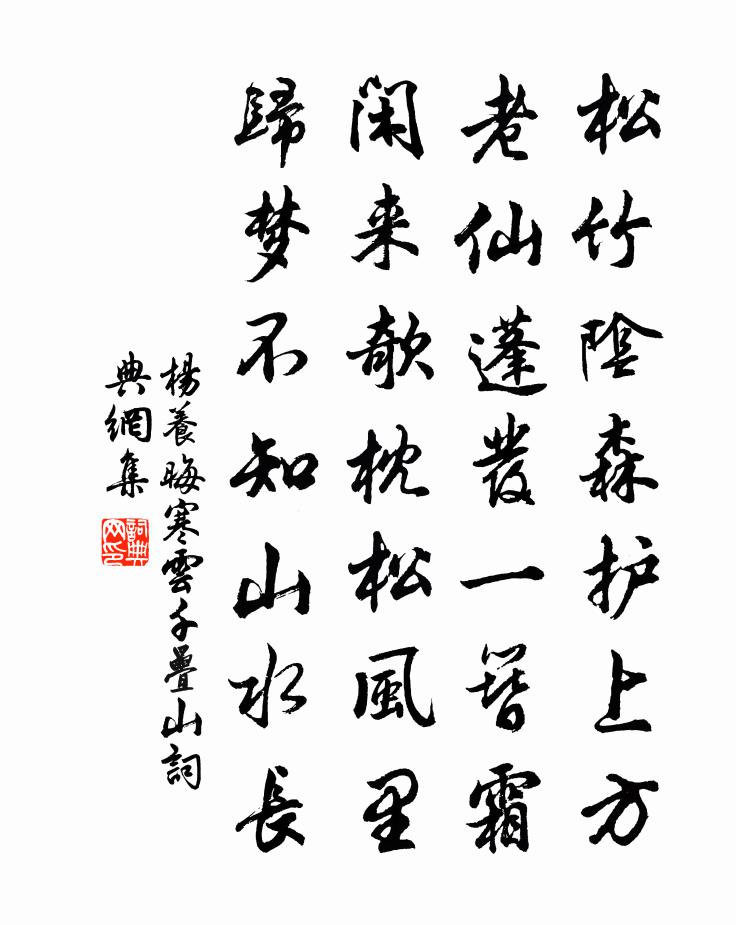 松竹陰森护上方
老仙蓬發一簪霜
闲来欹枕松風里
歸梦不知山水長
楊養晦寒雲千疊山詞
典網集
詞典网印